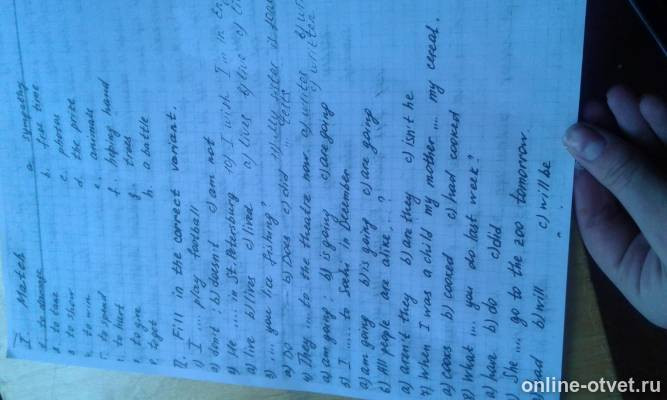 I. Match
to damage a sympathy
to take b. free time
to show c. photos
to win d. the prize
to spend e. animals
to hurt f. hand
to give g. trees
to get h. a battle
II. Fill in the correct variant.
1) I .... play football
a) don't; b) doesn't c) am not
2) He .... in St. Petersburg
a) live b) lives c) lived
3) .... you like fishing?
a) Do b) Does c) did
4) They ... to the theatre now.
a) am going; b) is going c) are going
5) I .... to Sochi in December
a) am going b) is going c) are going
6) All people are alike, ... ?
a) aren't they b) are they c) isn't he
7) When I was a child my mother .... my cereal.
a) cooks b) cooked c) had cooked
8) What .... you do last week?
a) have b) do c) did
She .... go to the zoo tomorrow.
b) will c) will be
10) I wish I'm in
a) lives b) live
My sister
a) writes
c) written
online-otvet.ru